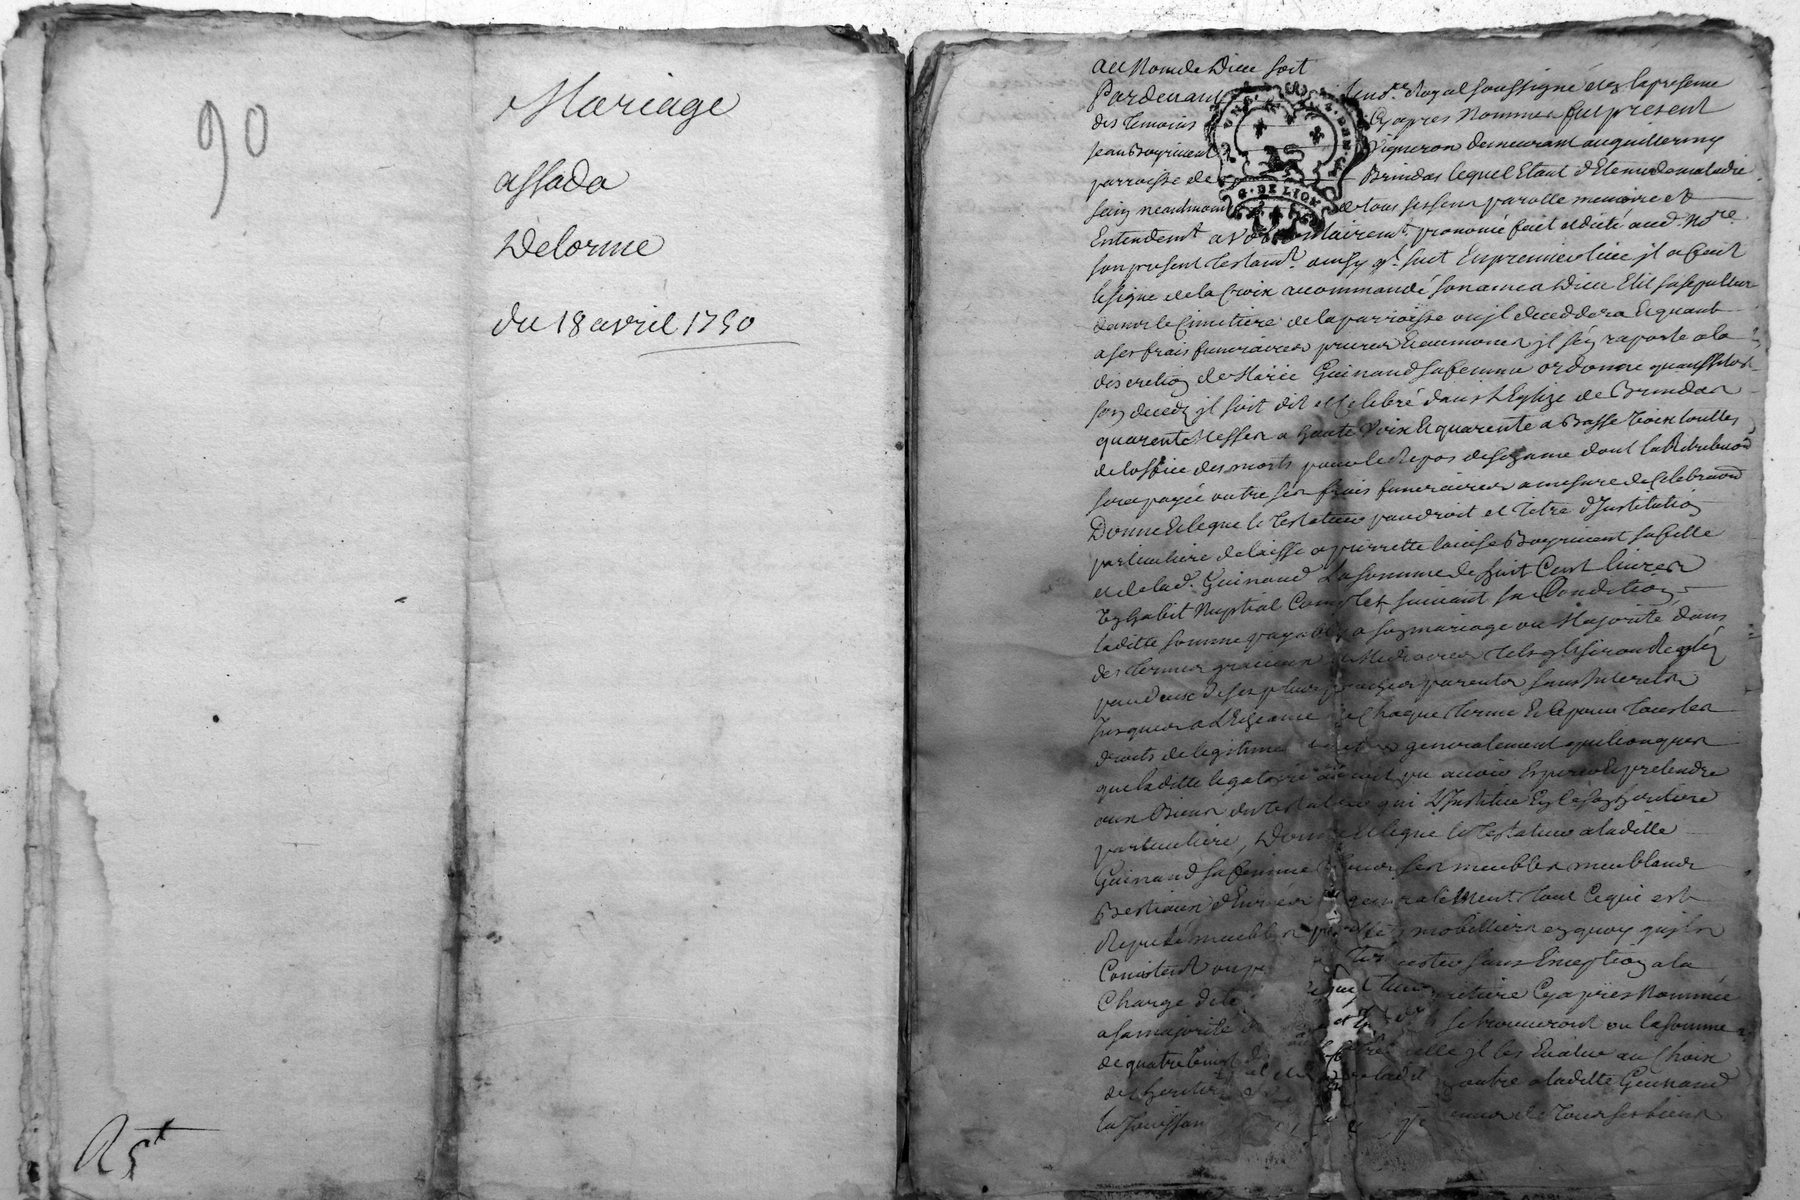 90
Mariage
assada
Delorme
du 18 avril 1750
R 5t
Au Nom de Dieu soit
Pardevant Royal soussigné et en la presence
des temoins Cy apres Nommes fut present
Jean Boyrivent Vigneron demeurant au guillermy
parroisse de Brindas lequel Etant detenu de maladie
sain neantmoins de tous ses sens parolle memoire et
Entendemt a volontairemt prononcé fait et dicté aud. Nore
son present testamt. ainsy qt. suit En premier lieu il a fait
le signe de la Croix recommandé son ame a Dieu Elit sa sepulture
dans le Cimetiere de la parroisse ou jl deceddera Et quant
a ses frais funeraires prieres Et aumones jl s'en raporte a la
discretion de Marie Guinand sa femme ordonne qu'aussitot
son deced jl soit dit et Celebré dans L'Eglize de Brindas
quarente Messes a haute Voix Et quarente a Basse Voix touttes
de losfice des morts pour le Repos de son ame dont la Retribuon
sera payée outre ses frais funeraires a mesure de Celebraon
Donne Et legue le Testateur par droit et titre d'Institution
particuliere delaisse a pierrette louise Boyrivent sa fille
et de lad. Guinand La somme de huit Cent livres
Et habit Nuptial Complet suivant sa Condition
laditte somme payable a son mariage ou Majorité dans
des termes gracieux Mediocres tels qls seront Reglés
par deux de ses plus proches parents sans Interets
Jusques a L'Echeance de Chaque terme Et Ce pour tous les
droits de legitime generalement quelconques
que laditte legataire auroit pu avoir Esperer Et pretendre
aux Biens du testateur qui L'Institue En Ce son heritiere
particuliere, Donne Et legue le Testateur a laditte
Guinand sa femme tous ses meubles meublans
Bestiaux Denrées generalement tout Ce qui est
Reputé meubles mobilliers en quoy qu'jls
Consistent ou sans Exception a la
Charge de heritiere Cy apres Nommée
a sa majorité se trouveront ou la somme
de quatre Cent celle jl les Evalue au Choix
des heritiers outre a laditte Guinand
la Jouissan de tous ses biens